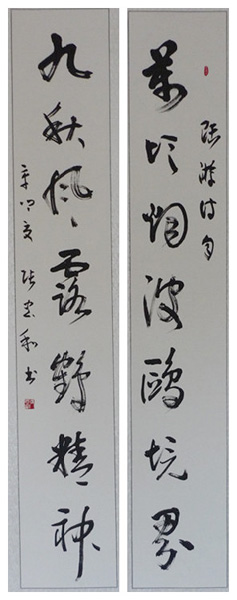 陸游詩句
萬頃烟波鷗境界
九秋風露鶴精神
辛卯夏 張 書